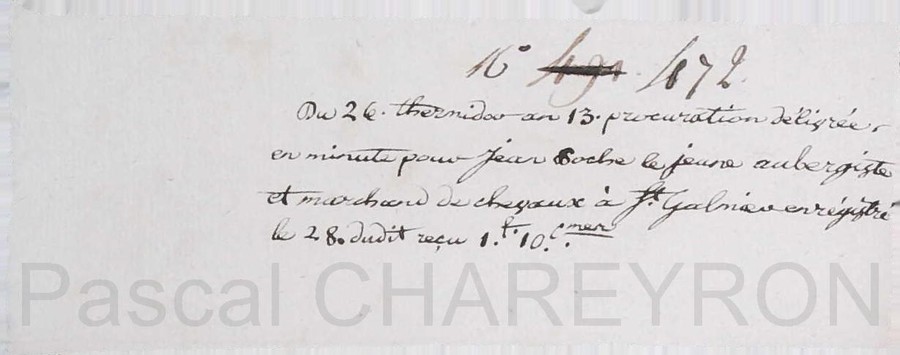 N° 472
Du 26. thermidor an 13. procuration délivrée
en minute pour Jean Coche le jeune aubergiste
et marchand de chevaux à St. Galmier enrégistré
le 28. dudit reçu 1.f. 10.cmes
Pascal CHAREYRON